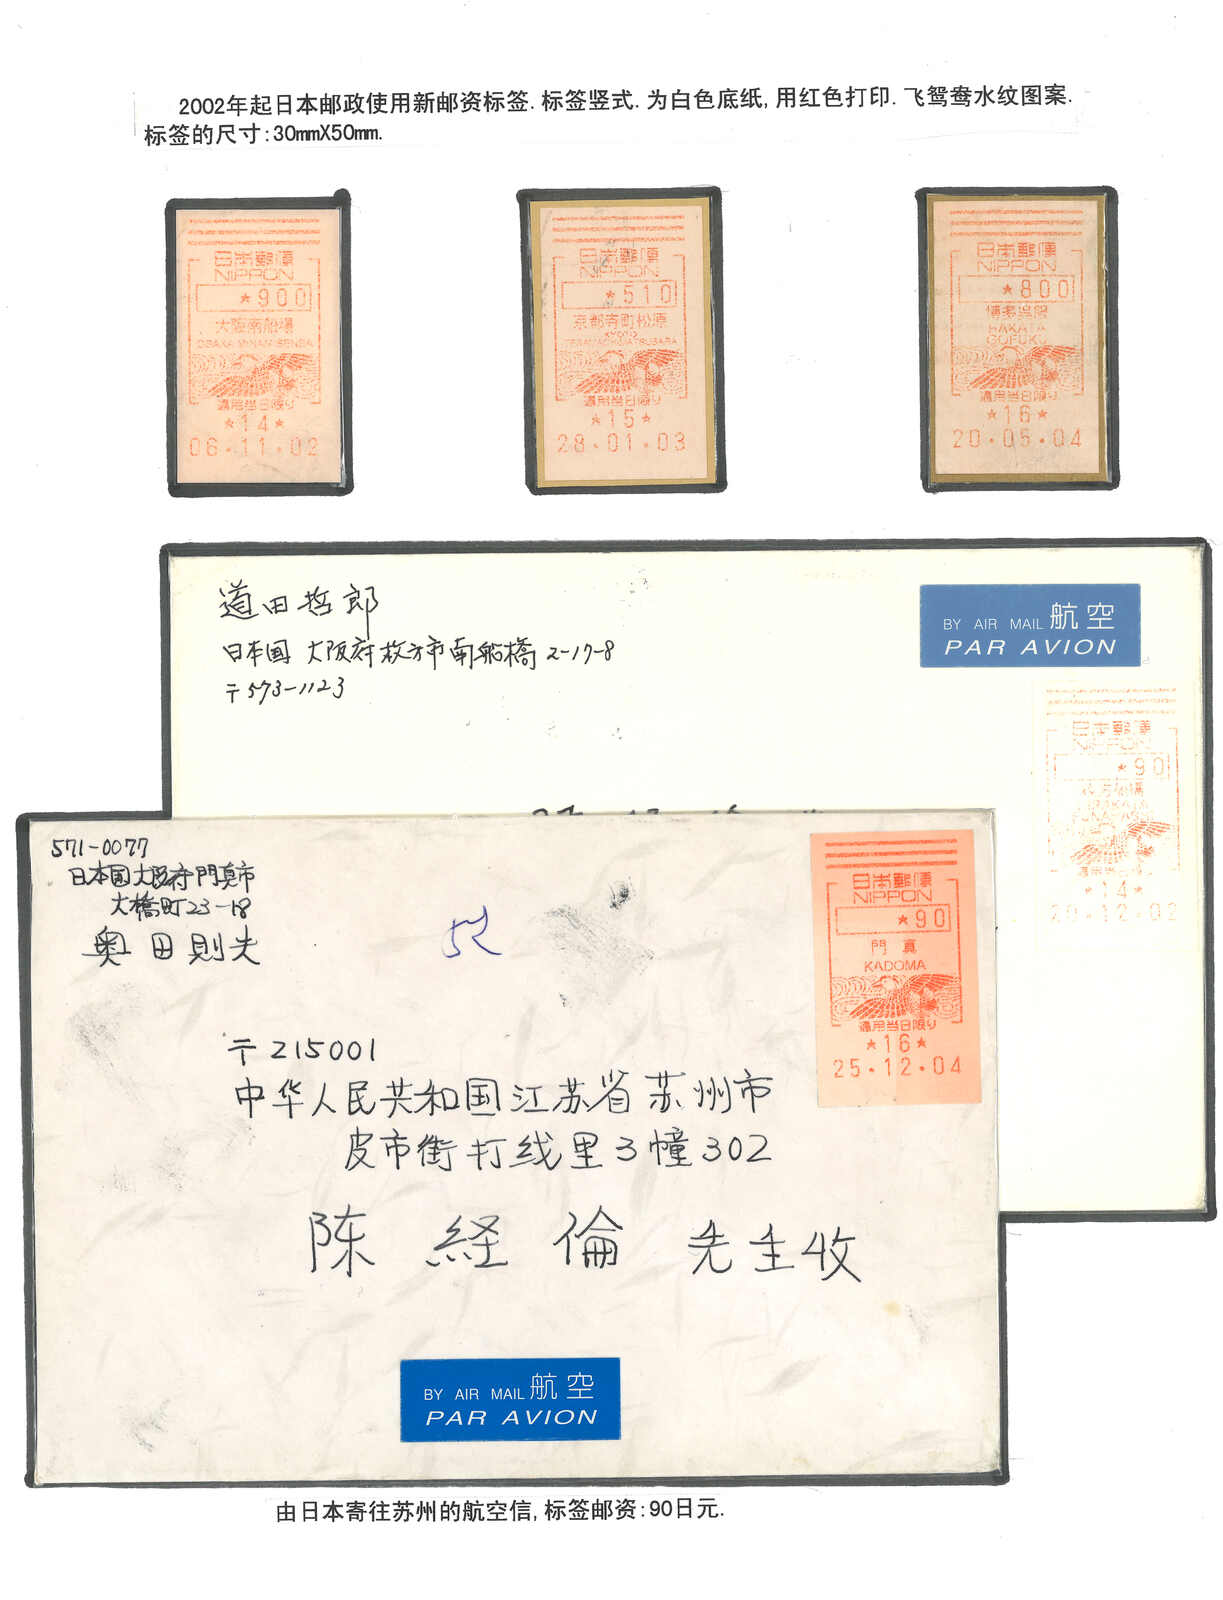 2002年起日本邮政使用新邮资标签.标签竖式.为白色底纸,用红色打印.飞鸳鸯水纹图案.
标签的尺寸:30mmX50mm.
日本郵便
NIPPON
*900
大阪南船場
OSAKA MINAMISENBA
適用当日限り
*14*
06.11.02
日本郵便
NIPPON
*510
京都寺町松原
KYOTO
TERAMACHIMATSUBARA
適用当日限り
*15*
28.01.03
日本郵便
NIPPON
*800
博多呉服
HAKATA
GOFUKU
適用当日限り
*16*
20.05.04
道田哲郎
日本国 大阪府枚方市南船橋 2-17-8
〒573-1123
BY AIR MAIL 航空
PAR AVION
日本郵便
NIPPON
*90
枚方船橋
HIRAKATA
FUNAHASHI
適用当日限り
*14*
20.12.02
571-0077
日本国大阪府門真市
大橋町23-18
奥田則夫
日本郵便
NIPPON
*90
門真
KADOMA
適用当日限り
*16*
25.12.04
〒215001
中华人民共和国江苏省苏州市
皮市街打线里3幢302
陈 経 倫 先生收
BY AIR MAIL 航空
PAR AVION
由日本寄往苏州的航空信,标签邮资:90日元.